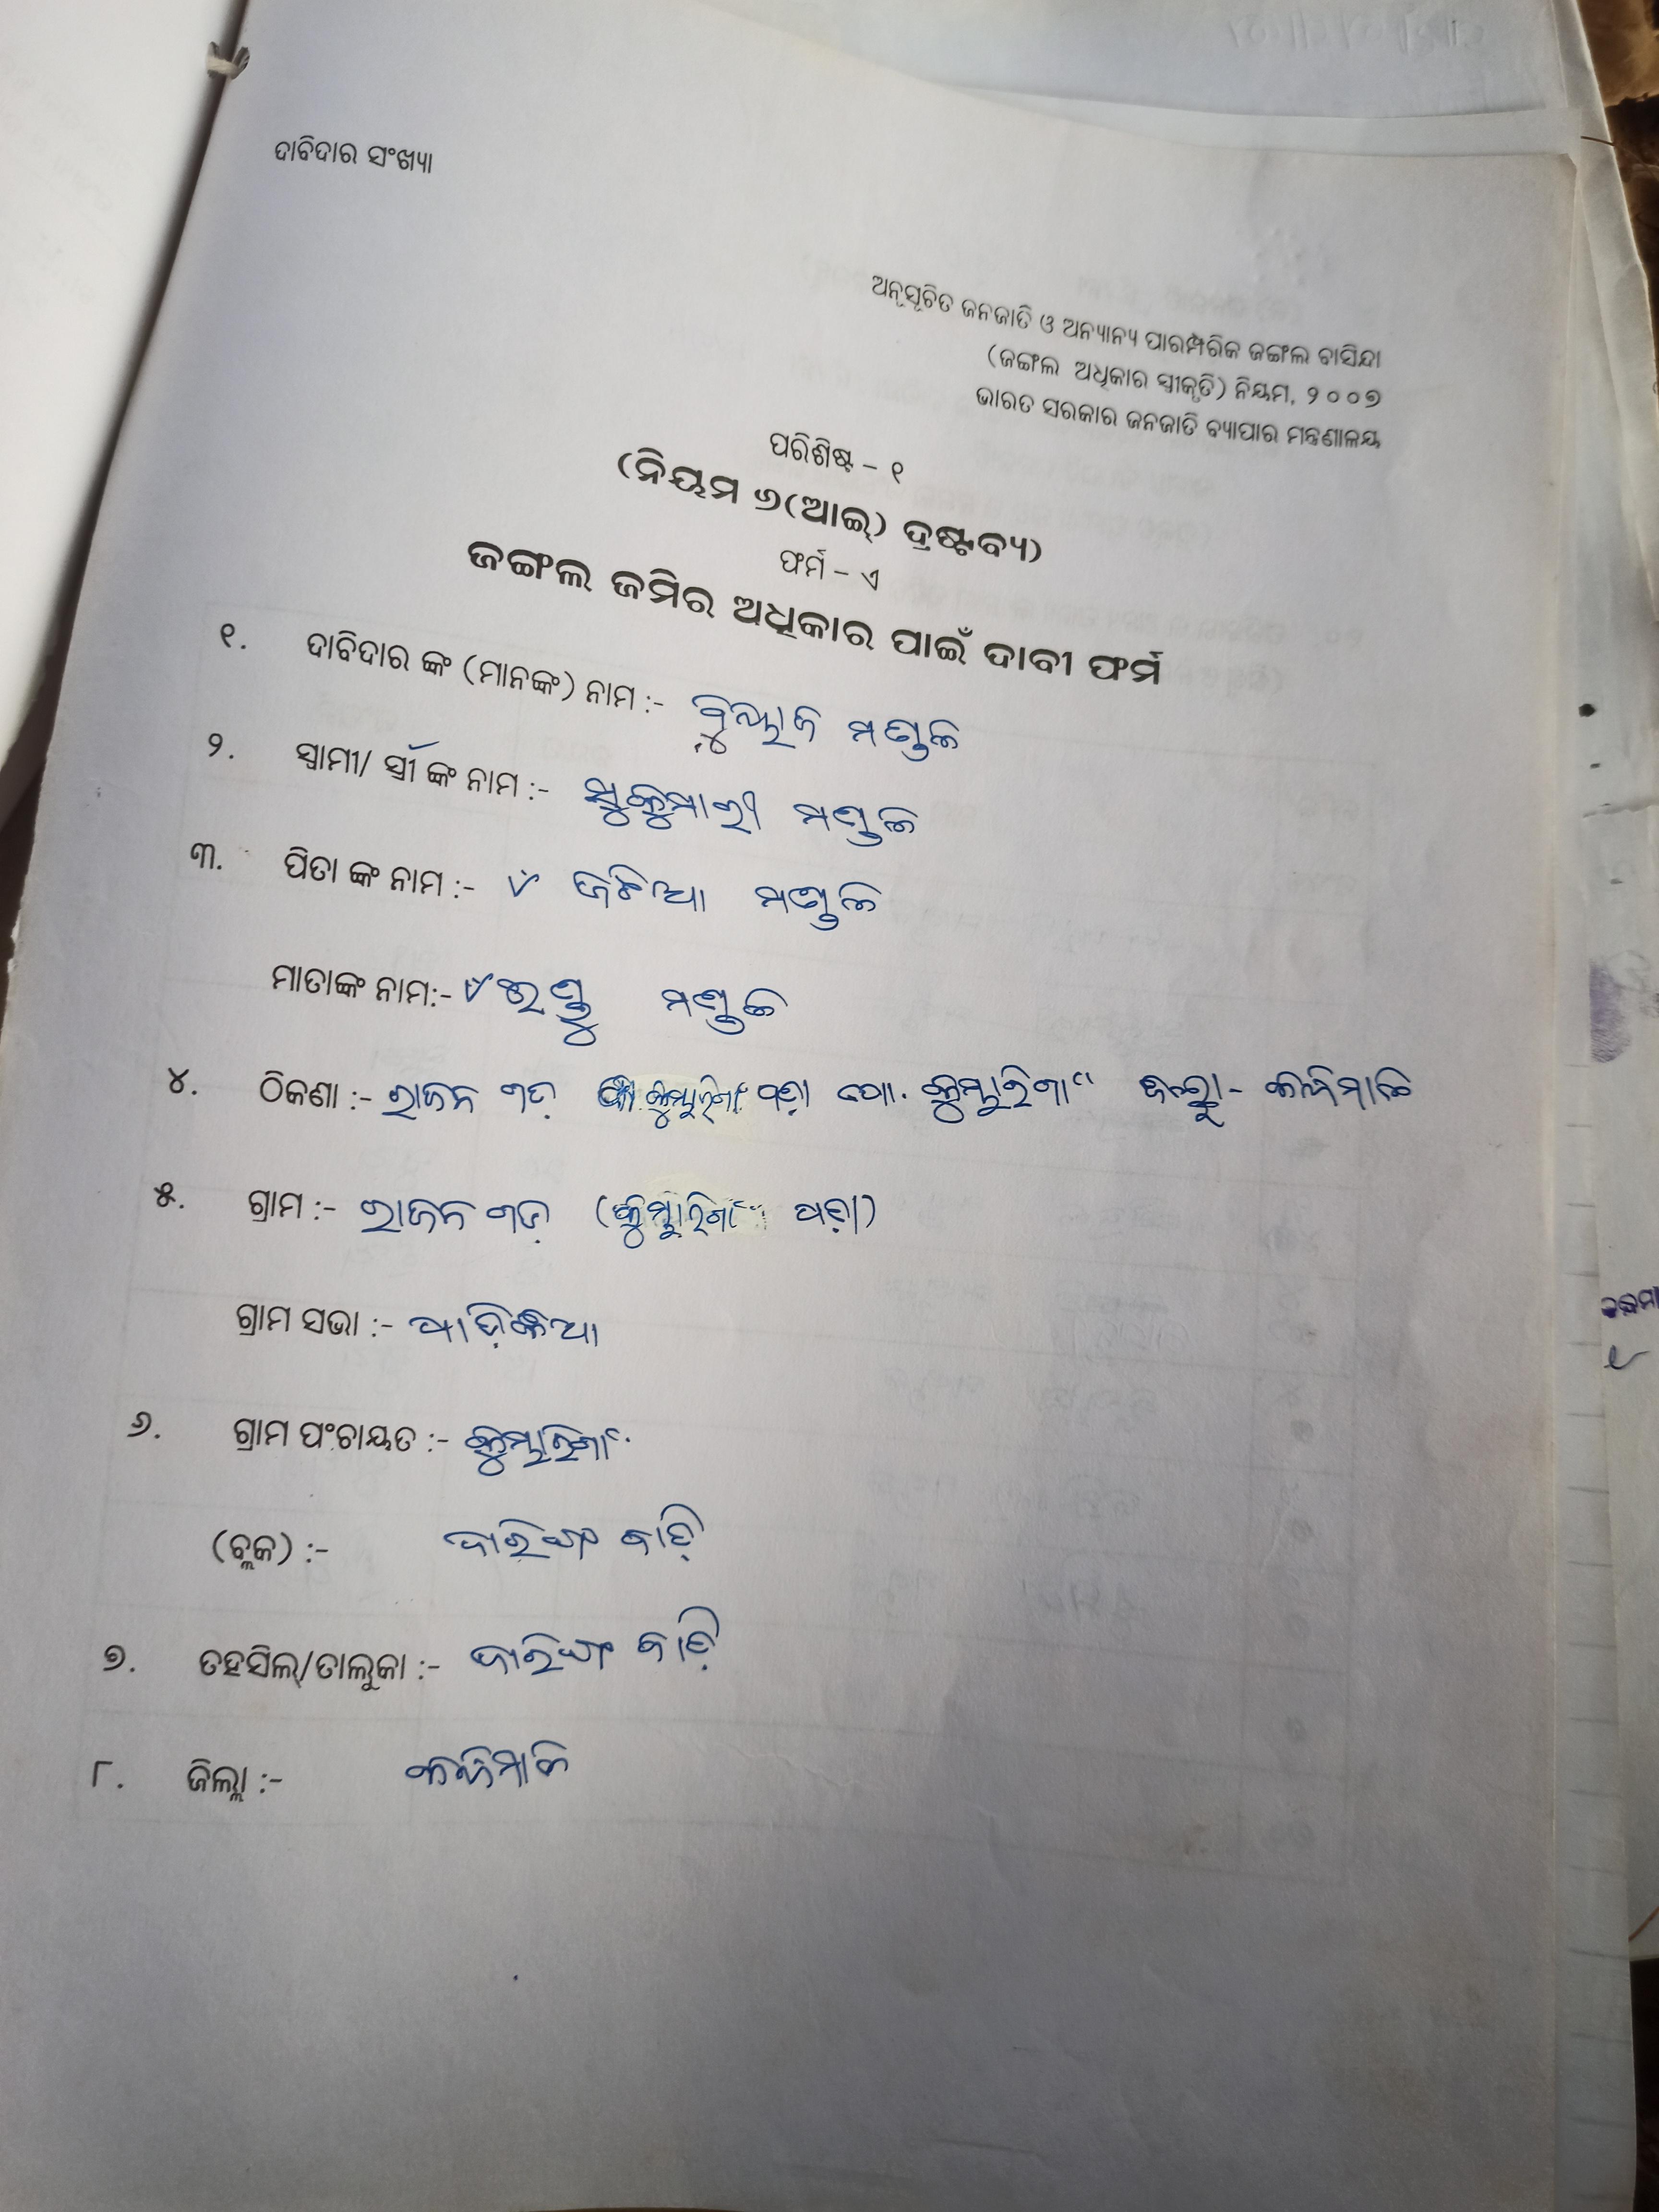 ଦାବିଦାର ସଂଖ୍ୟା
ଅନୁସୂଚିତ ଜନଜାତି ଓ ଅନ୍ୟାନ୍ୟ ପାରମ୍ପରିକ ଜଙ୍ଗଲ ବାସିନ୍ଦା
(ଜଙ୍ଗଲ ଅଧିକାର ସ୍ୱୀକୃତି) ନିୟମ, ୨୦୦୭
ଭାରତ ସରକାର ଜନଜାତି ବ୍ୟାପାର ମନ୍ତ୍ରଣାଳୟ
ପରିଶିଷ୍ଟ – ୧
(ନିୟମ ୬(ଆଇ) ଦ୍ରଷ୍ଟବ୍ୟ)
ଫର୍ମ – ଏ
ଜଙ୍ଗଲ ଜମିର ଅଧିକାର ପାଇଁ ଦାବୀ ଫର୍ମ
୧. ଦାବିଦାର ଙ୍କ (ମାନଙ୍କ) ନାମ :- ମଣ୍ଡଳ
୨. ସ୍ୱାମୀ/ ସ୍ତ୍ରୀ ଙ୍କ ନାମ :- ସୁକୁମାରୀ ମଣ୍ଡଳ
୩. ପିତା ଙ୍କ ନାମ :- ମଣ୍ଡଳ
ମାତାଙ୍କ ନାମ:- ମଣ୍ଡଳ
୪. ଠିକଣା :- ରାଜନ ପୋ. କୁମ୍ଭାରିଗାଁ ଜିଲ୍ଲା- କନ୍ଧମାଳ
୫. ଗ୍ରାମ :- ରାଜନ (କୁମ୍ଭାରିଗାଁ ପଡ଼ା)
ଗ୍ରାମ ସଭା :-
୬. ଗ୍ରାମ ପଂଚାୟତ :- କୁମ୍ଭାରିଗାଁ
(ବ୍ଲକ) :- ଦାରିଙ୍ଗ ବାଡ଼ି
୭. ତହସିଲ୍/ତାଲୁକା :- ଦାରିଙ୍ଗ ବାଡ଼ି
୮. ଜିଲ୍ଲା :- କନ୍ଧମାଳ